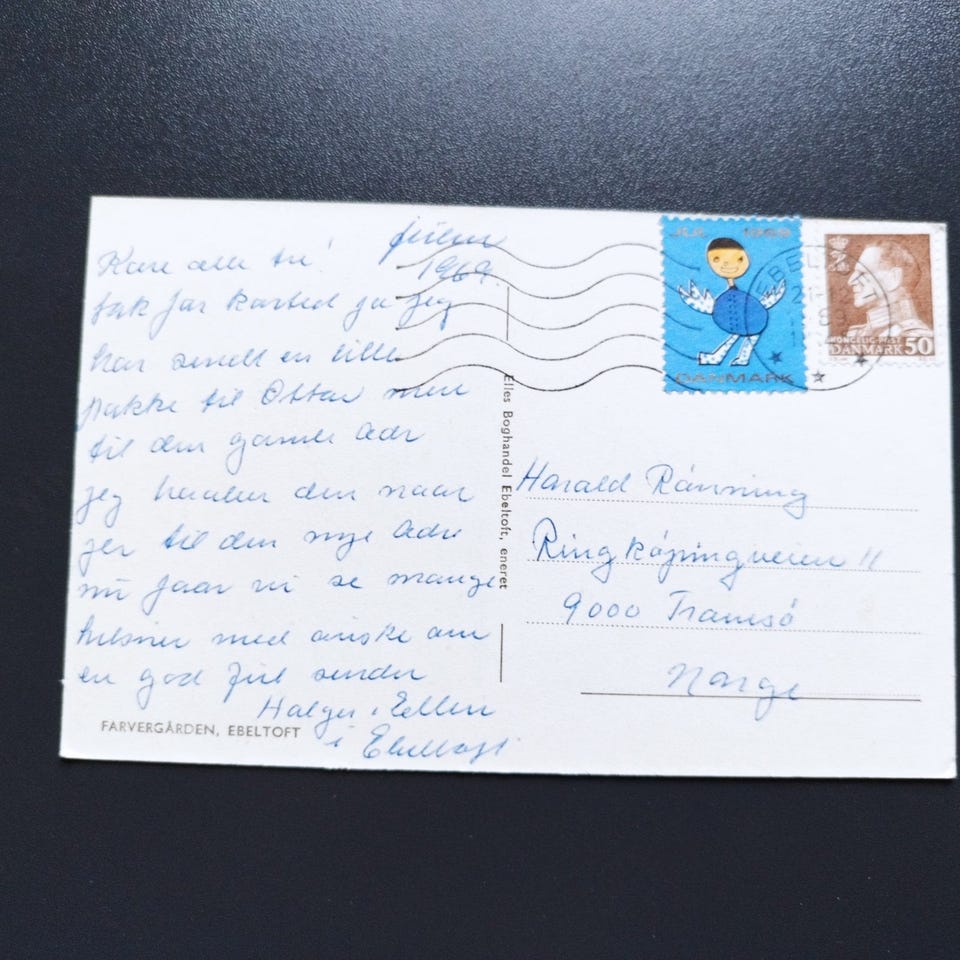 julen
1969.
Kære alle tri!
tak for kortet ja jeg
har sendt en lille
pakke til Ottar men
til den gamle adr
jeg haaber den naar
jer til den nye Adr
nu faar vi se mange
hilsner med ønske om
en god jul sender
Holger & Ellen
i Ebeltoft
FARVERGÅRDEN, EBELTOFT
Elles Boghandel Ebeltoft, eneret
JUL 1969
DANMARK
EBELTOFT
KONGELIG POST
DANMARK 50
Harald Rönning
Ringköpingveien 11
9000 Tromsö
Norge